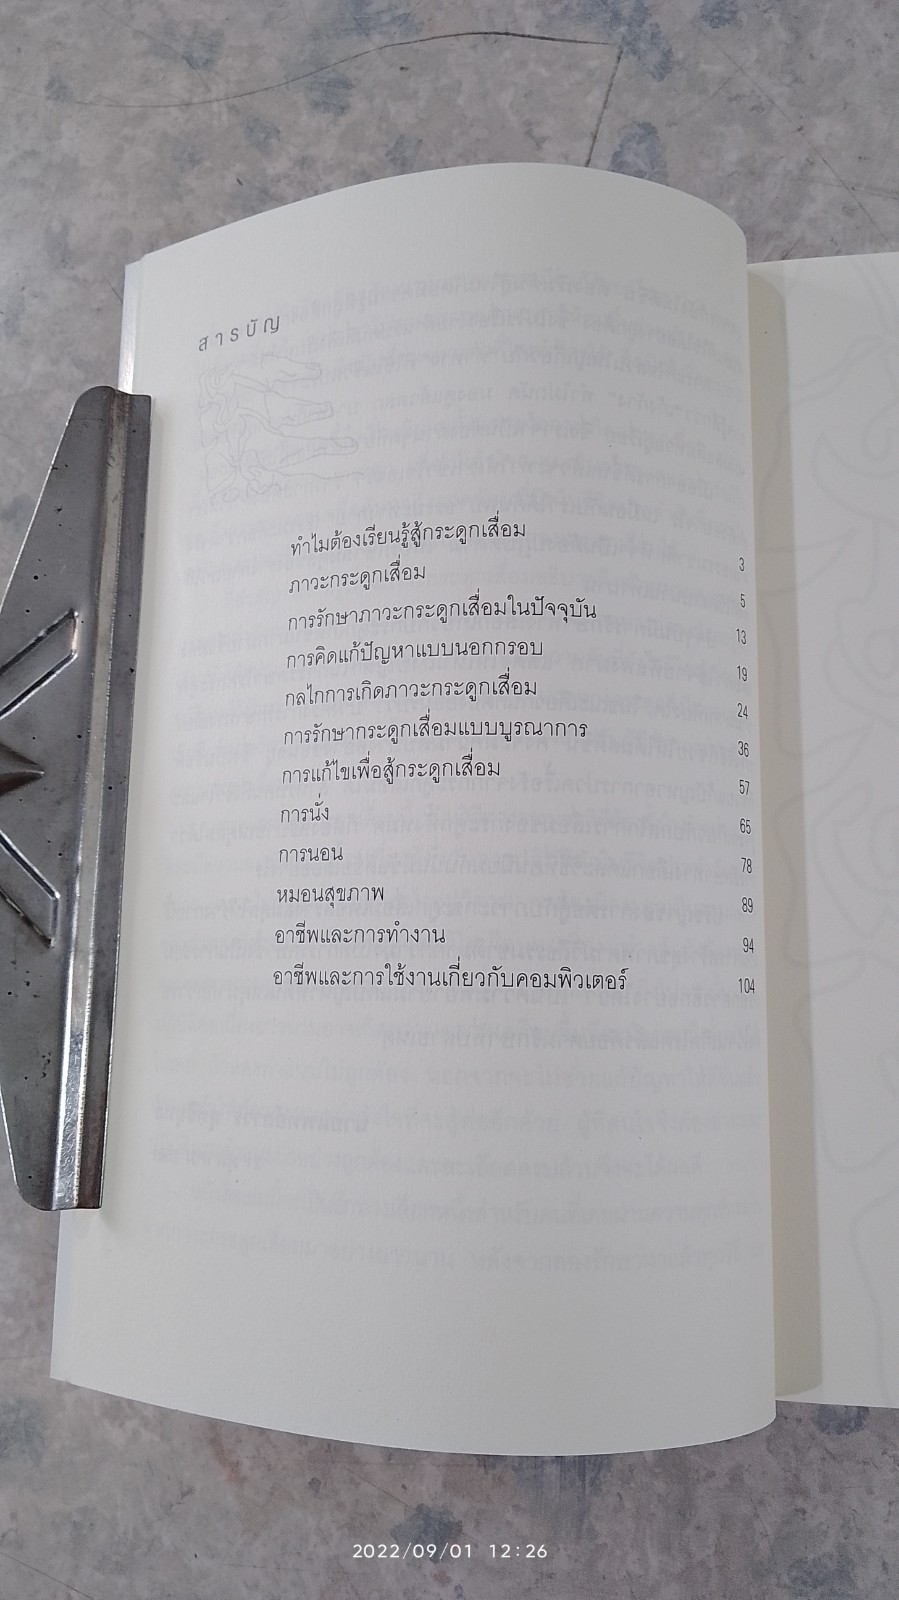 สารบัญ
ทำไมต้องเรียนรู้สู้กระดูกเสื่อม 3
ภาวะกระดูกเสื่อม 5
การรักษาภาวะกระดูกเสื่อมในปัจจุบัน 13
การคิดแก้ปัญหาแบบนอกกรอบ 19
กลไกการเกิดภาวะกระดูกเสื่อม 24
การรักษากระดูกเสื่อมแบบบูรณาการ 36
การแก้ไขเพื่อสู้กระดูกเสื่อม 57
การนั่ง 65
การนอน 78
หมอนสุขภาพ 89
อาชีพและการทำงาน 94
อาชีพและการใช้งานเกี่ยวกับคอมพิวเตอร์ 104
2022/09/01 12:26